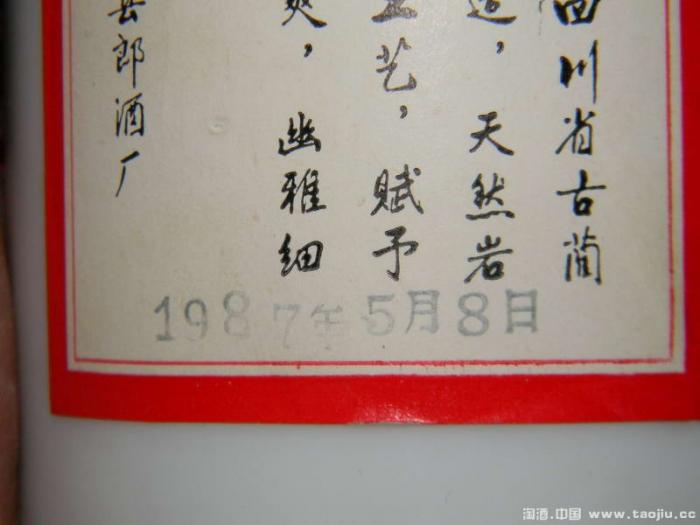 四川省古蔺
造,天然岩
工艺,赋予
爽,幽雅细
县郎酒厂
1987年5月8日
淘酒.中国 www.taojiu.cc